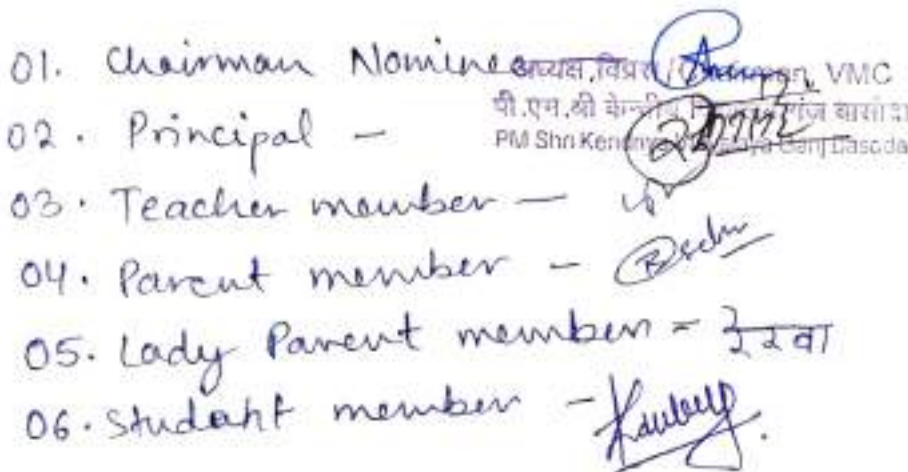 01. Chairman Nominee
अध्यक्ष, विप्रस / Chairman, VMC
पी.एम.श्री केन्द्रीय गंज बासोदा
02. Principal -
PM Shri Kendriya Vidyalaya Ganj Basoda
03. Teacher member -
04. Parent member -
05. Lady Parent member - रेखा
06. Studaht member -